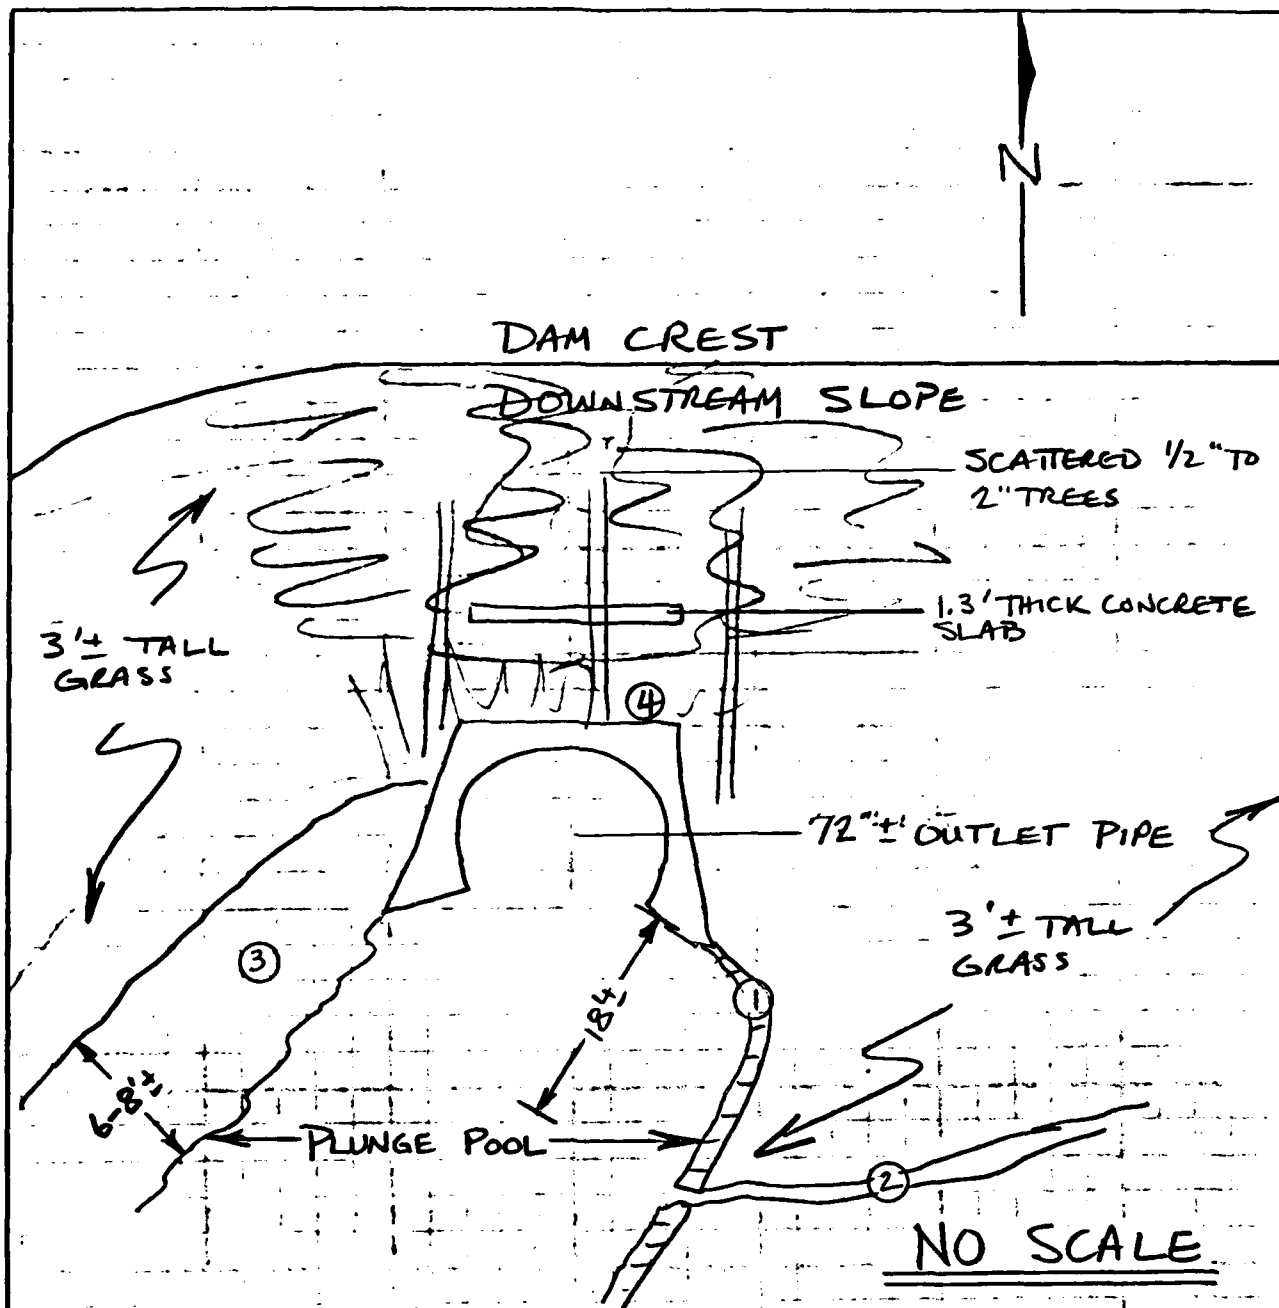 N
DAM CREST
DOWNSTREAM SLOPE
SCATTERED 1/2" TO
2" TREES
1.3' THICK CONCRETE
SLAB
3'± TALL
GRASS
4
72"± OUTLET PIPE
3'± TALL
GRASS
3
1
18'±
6-8'±
PLUNGE POOL
2
NO SCALE